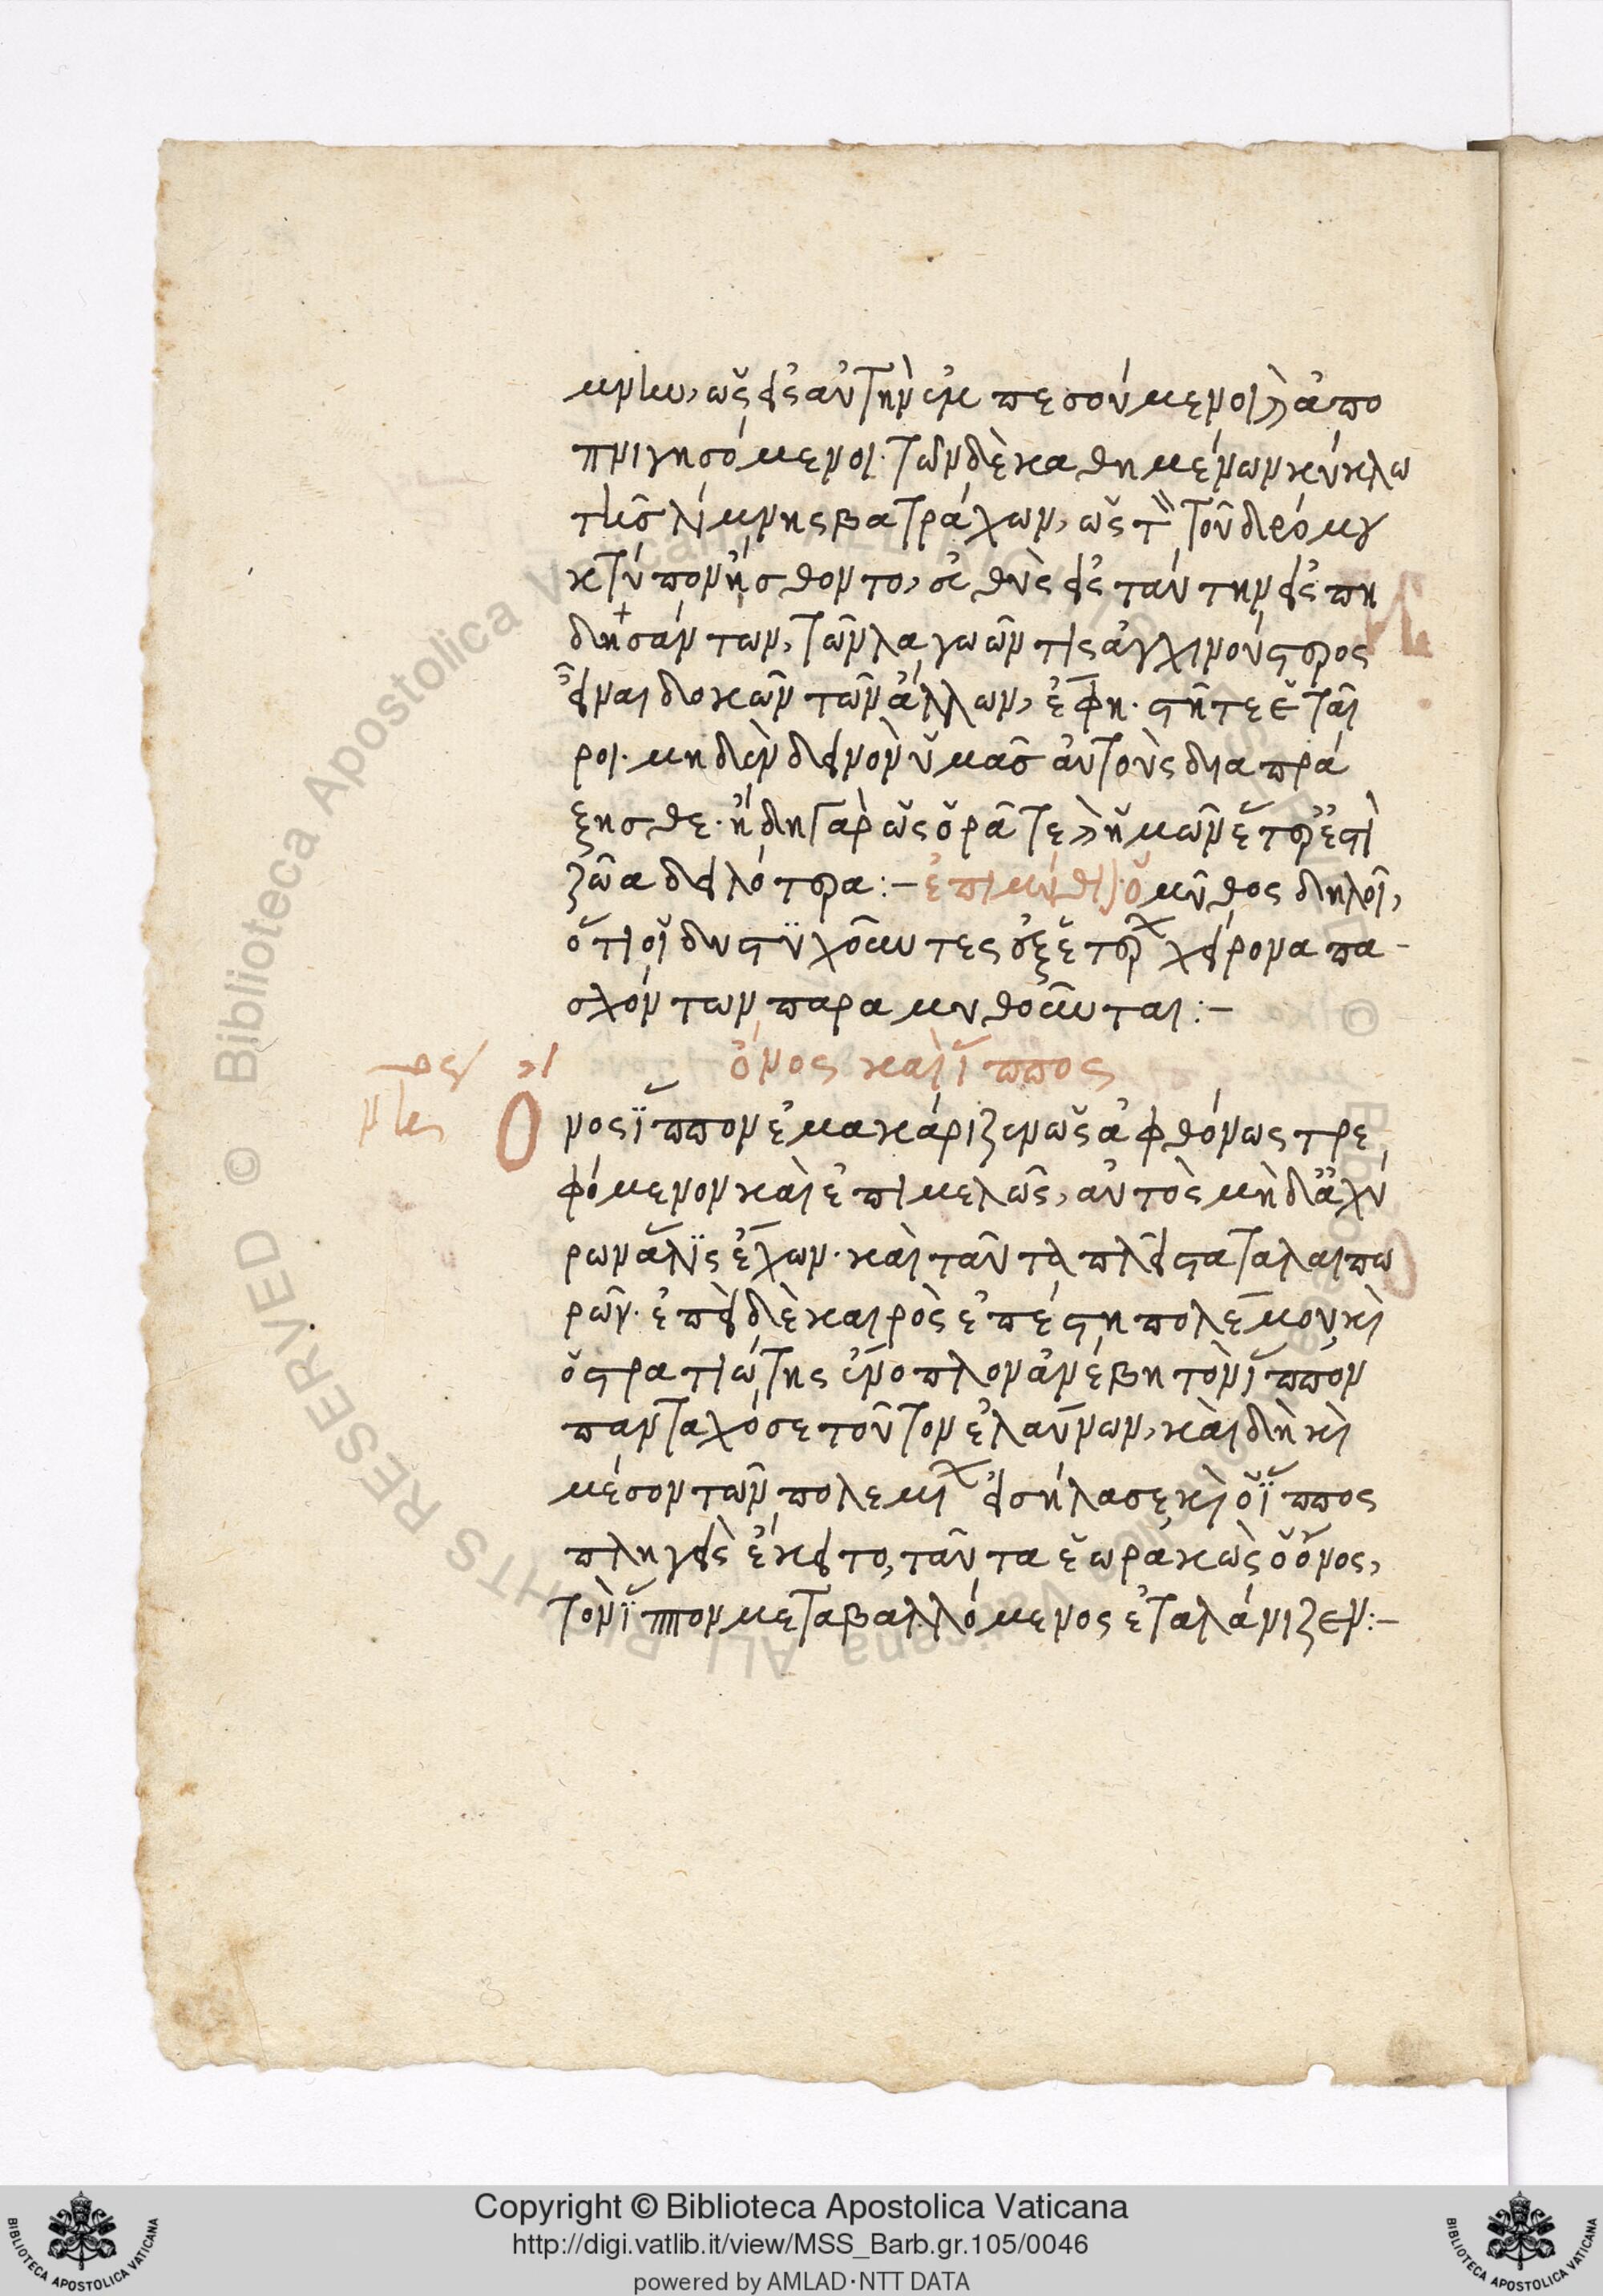 μνην, ὡς εἰς αὐτὴν ἐμπεσούμενοι καὶ ἀπο
πνιγησόμενοι. τῶν δὲ καθημένων κύκλω
τῆς λίμνης βατράχων, ὡς τὸν τοῦ δρόμου
κτύπον ἤσθοντο, εὐθὺς εἰς ταύτην εἰσπη
δησάντων, τῶν λαγωῶν τις ἀγχινούστερος
εἶναι δοκῶν τῶν ἄλλων, ἔφη. στῆτε ἑταῖ
ροι. μηδὲν δεινὸν ὑμᾶς αὐτοὺς διαπρά
ξησθε. ἤδη γὰρ ὡς ὁρᾶτε καὶ ἡμῶν ἕτερ' ἐστὶ
ζῶα δειλότερα :- ἐπιμύθιον. ὁ μῦθος δηλοῖ,
ὅτι οἱ δυστυχοῦντες ἐξ ἑτέρων χείρονα πα-
σχόντων παραμυθοῦνται :-
ὄνος καὶ ἵππος
Ὄνος ἵππον ἐμακάριζεν ὡς ἀφθόνως τρε
φόμενον καὶ ἐπιμελῶς, αὐτὸς μὴδ' ἀχύ
ρων ἅλις ἔχων. καὶ ταῦτα πλεῖστα ταλαιπω
ρῶν. ἐπεὶ δὲ καιρὸς ἐπέστη πολέμου καὶ
ὁ στρατιώτης ἔνοπλον ἀνέβη τὸν ἵππον
πανταχόσε τοῦτον ἐλαύνων, καὶ δὴ καὶ
μέσον τῶν πολεμίων εἰσήλασε καὶ ὁ ἵππος
πληγεὶς ἔκειτο, ταῦτα ἑωρακὼς ὁ ὄνος,
τὸν ἵππον μεταβαλλόμενος ἐταλάνιζεν :-
Copyright © Biblioteca Apostolica Vaticana
http://digi.vatlib.it/view/MSS_Barb.gr.105/0046
powered by AMLAD·NTT DATA